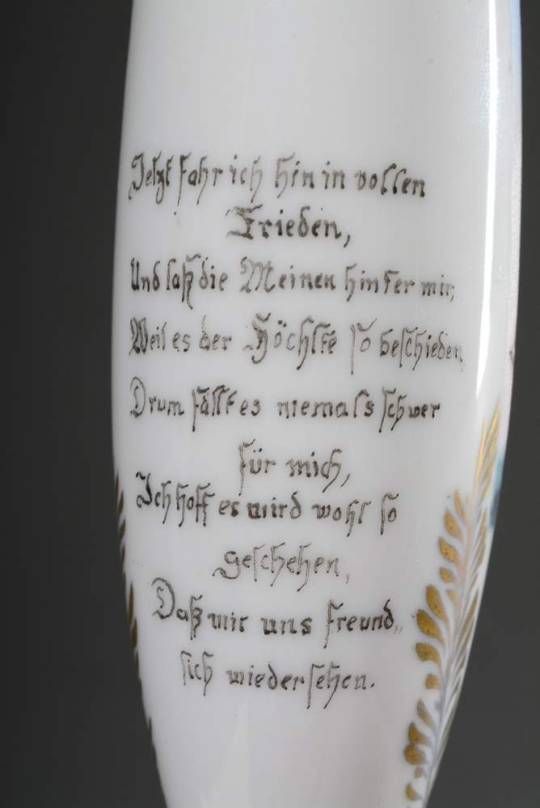 Jetzt fahr ich hin in vollen
Frieden,
Und laß die Meinen hinter mir,
Weil es der Höchste so beschieden
Drum fällt es niemals schwer
für mich,
Ich hoff es wird wohl so
geschehen,
Daß wir uns freund„
sich wiedersehen.